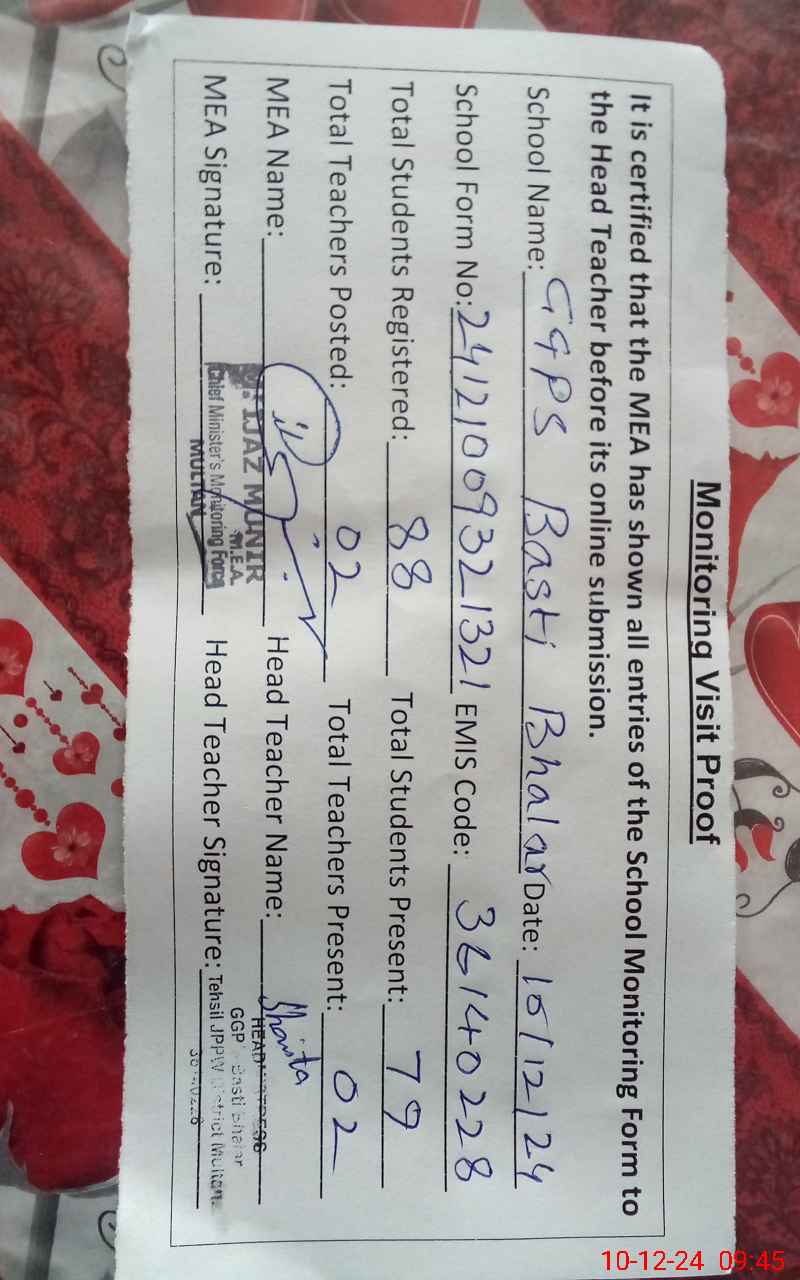 Monitoring Visit Proof
It is certified that the MEA has shown all entries of the School Monitoring Form to
the Head Teacher before its online submission.
School Name: GGPS Basti Bhalar Date: 10/12/24
School Form No: 24121009321321 EMIS Code: 36140228
Total Students Registered: 88 Total Students Present: 79
Total Teachers Posted: 02 Total Teachers Present: 02
MEA Name: IJAZ MUNIR Head Teacher Name:
M.E.A.
Chief Minister's Monitoring Force
MULTAN
MEA Signature: Head Teacher Signature:
GGP Basti Bhalar
Tehsil JPPW District Multan
10-12-24 09:45